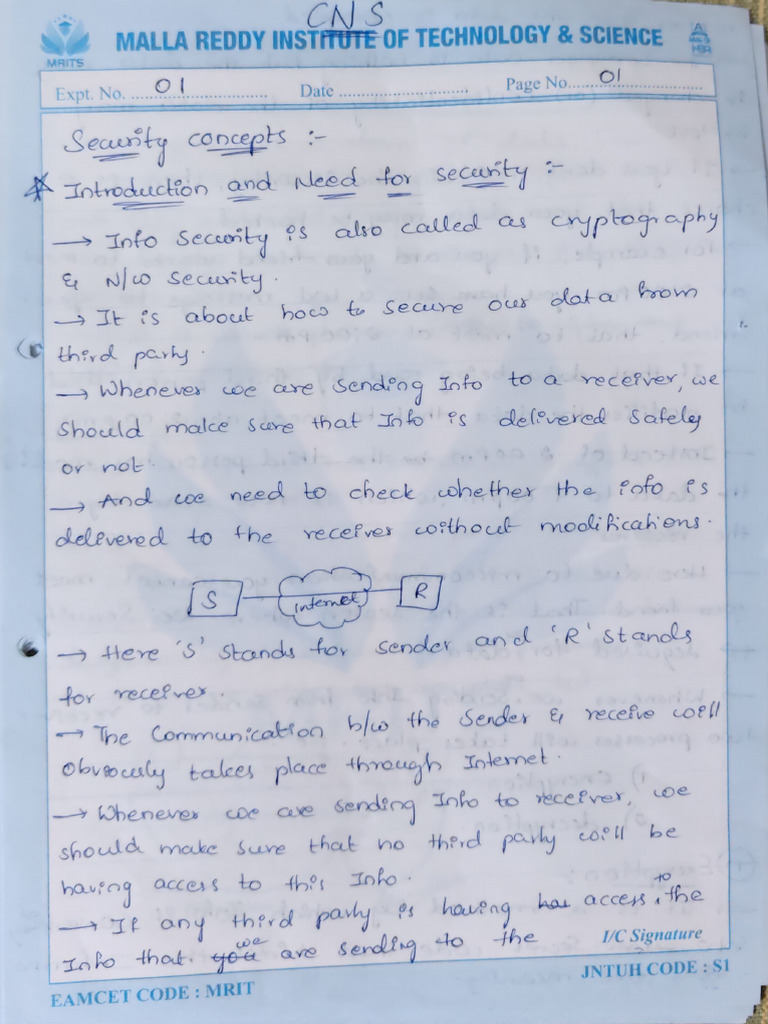 CNS
MRITS
MALLA REDDY INSTITUTE OF TECHNOLOGY & SCIENCE
Expt. No. 01 Date Page No. 01
Security concepts :-
Introduction and Need for security :-
→ Info Security is also called as cryptography
& N/w security.
→ It is about how to secure our data from
third party.
→ Whenever we are sending Info to a receiver, we
should make sure that Info is delivered safely
or not.
→ And we need to check whether the info is
delivered to the receiver without modifications.
S internet R
→ Here 'S' stands for sender and 'R' stands
for receiver
→ The Communication b/w the Sender & receive will
Obviously takes place through Internet.
→ Whenever we are sending Info to receiver, we
should make sure that no third party will be
having access to this Info.
→ If any third party is having access to the
Info that we are sending to the
I/C Signature
EAMCET CODE : MRIT JNTUH CODE : S1